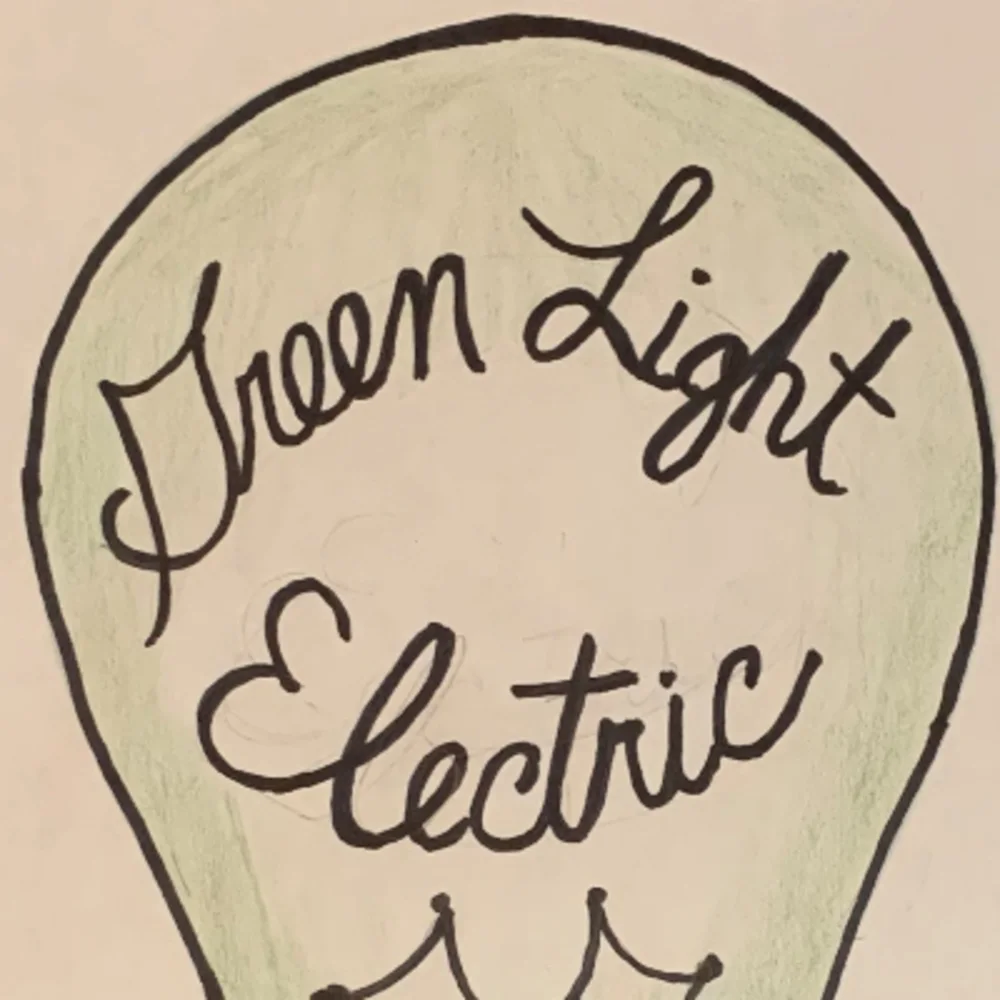 Green Light
Electric